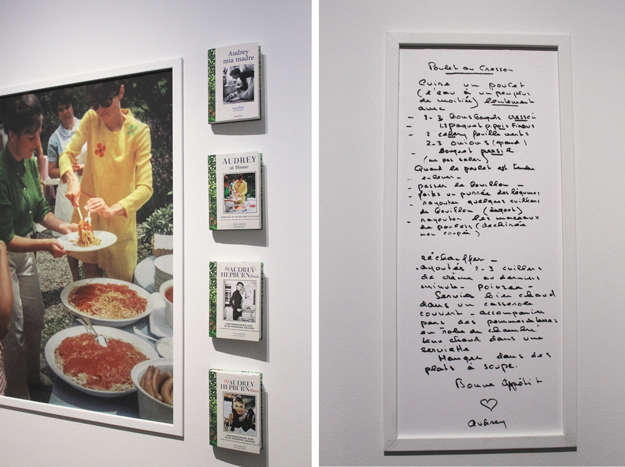 Audrey
mia madre
AUDREY
at Home
AUDREY
HEPBURN
AUDREY
HEPBURN
Poulet au Cresson
Cuire un poulet
(l'eau à un peu plus
de moitié) lentement
avec
- 2-3 bons bouquets cresson
- 1 paquet
- 2 celery feuille verts
2-3 onions (grand)
bouquet persil
(ne pas saler)
Quand le poulet est tendre
enlever -
- passer le bouillon -
- faire un purée des légumes
- rajouter quelques cuillers
de bouillon
- rajouter les morceaux
de poulet (déchirés
non coupés)
réchauffer -
- ajoutez 2-3 cuillers
de crème au dernière
minute -
Servir bien chaud
dans un casserole
couvert - accompagner
par des pommes de terre
en robe de chambre
tout chaud dans une
serviette
Manger dans des
plats à soupe.
Bonne Appétit
Audrey